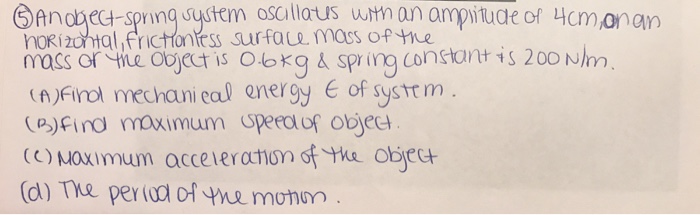 ⑤ An object-spring system oscillates with an amplitude of 4cm, on an
horizontal, frictionless surface mass of the
mass of the object is 0.6kg & spring constant is 200 N/m.
(A) Find mechanical energy E of system.
(B) find maximum speed of object.
(c) Maximum acceleration of the object
(d) The period of the motion.